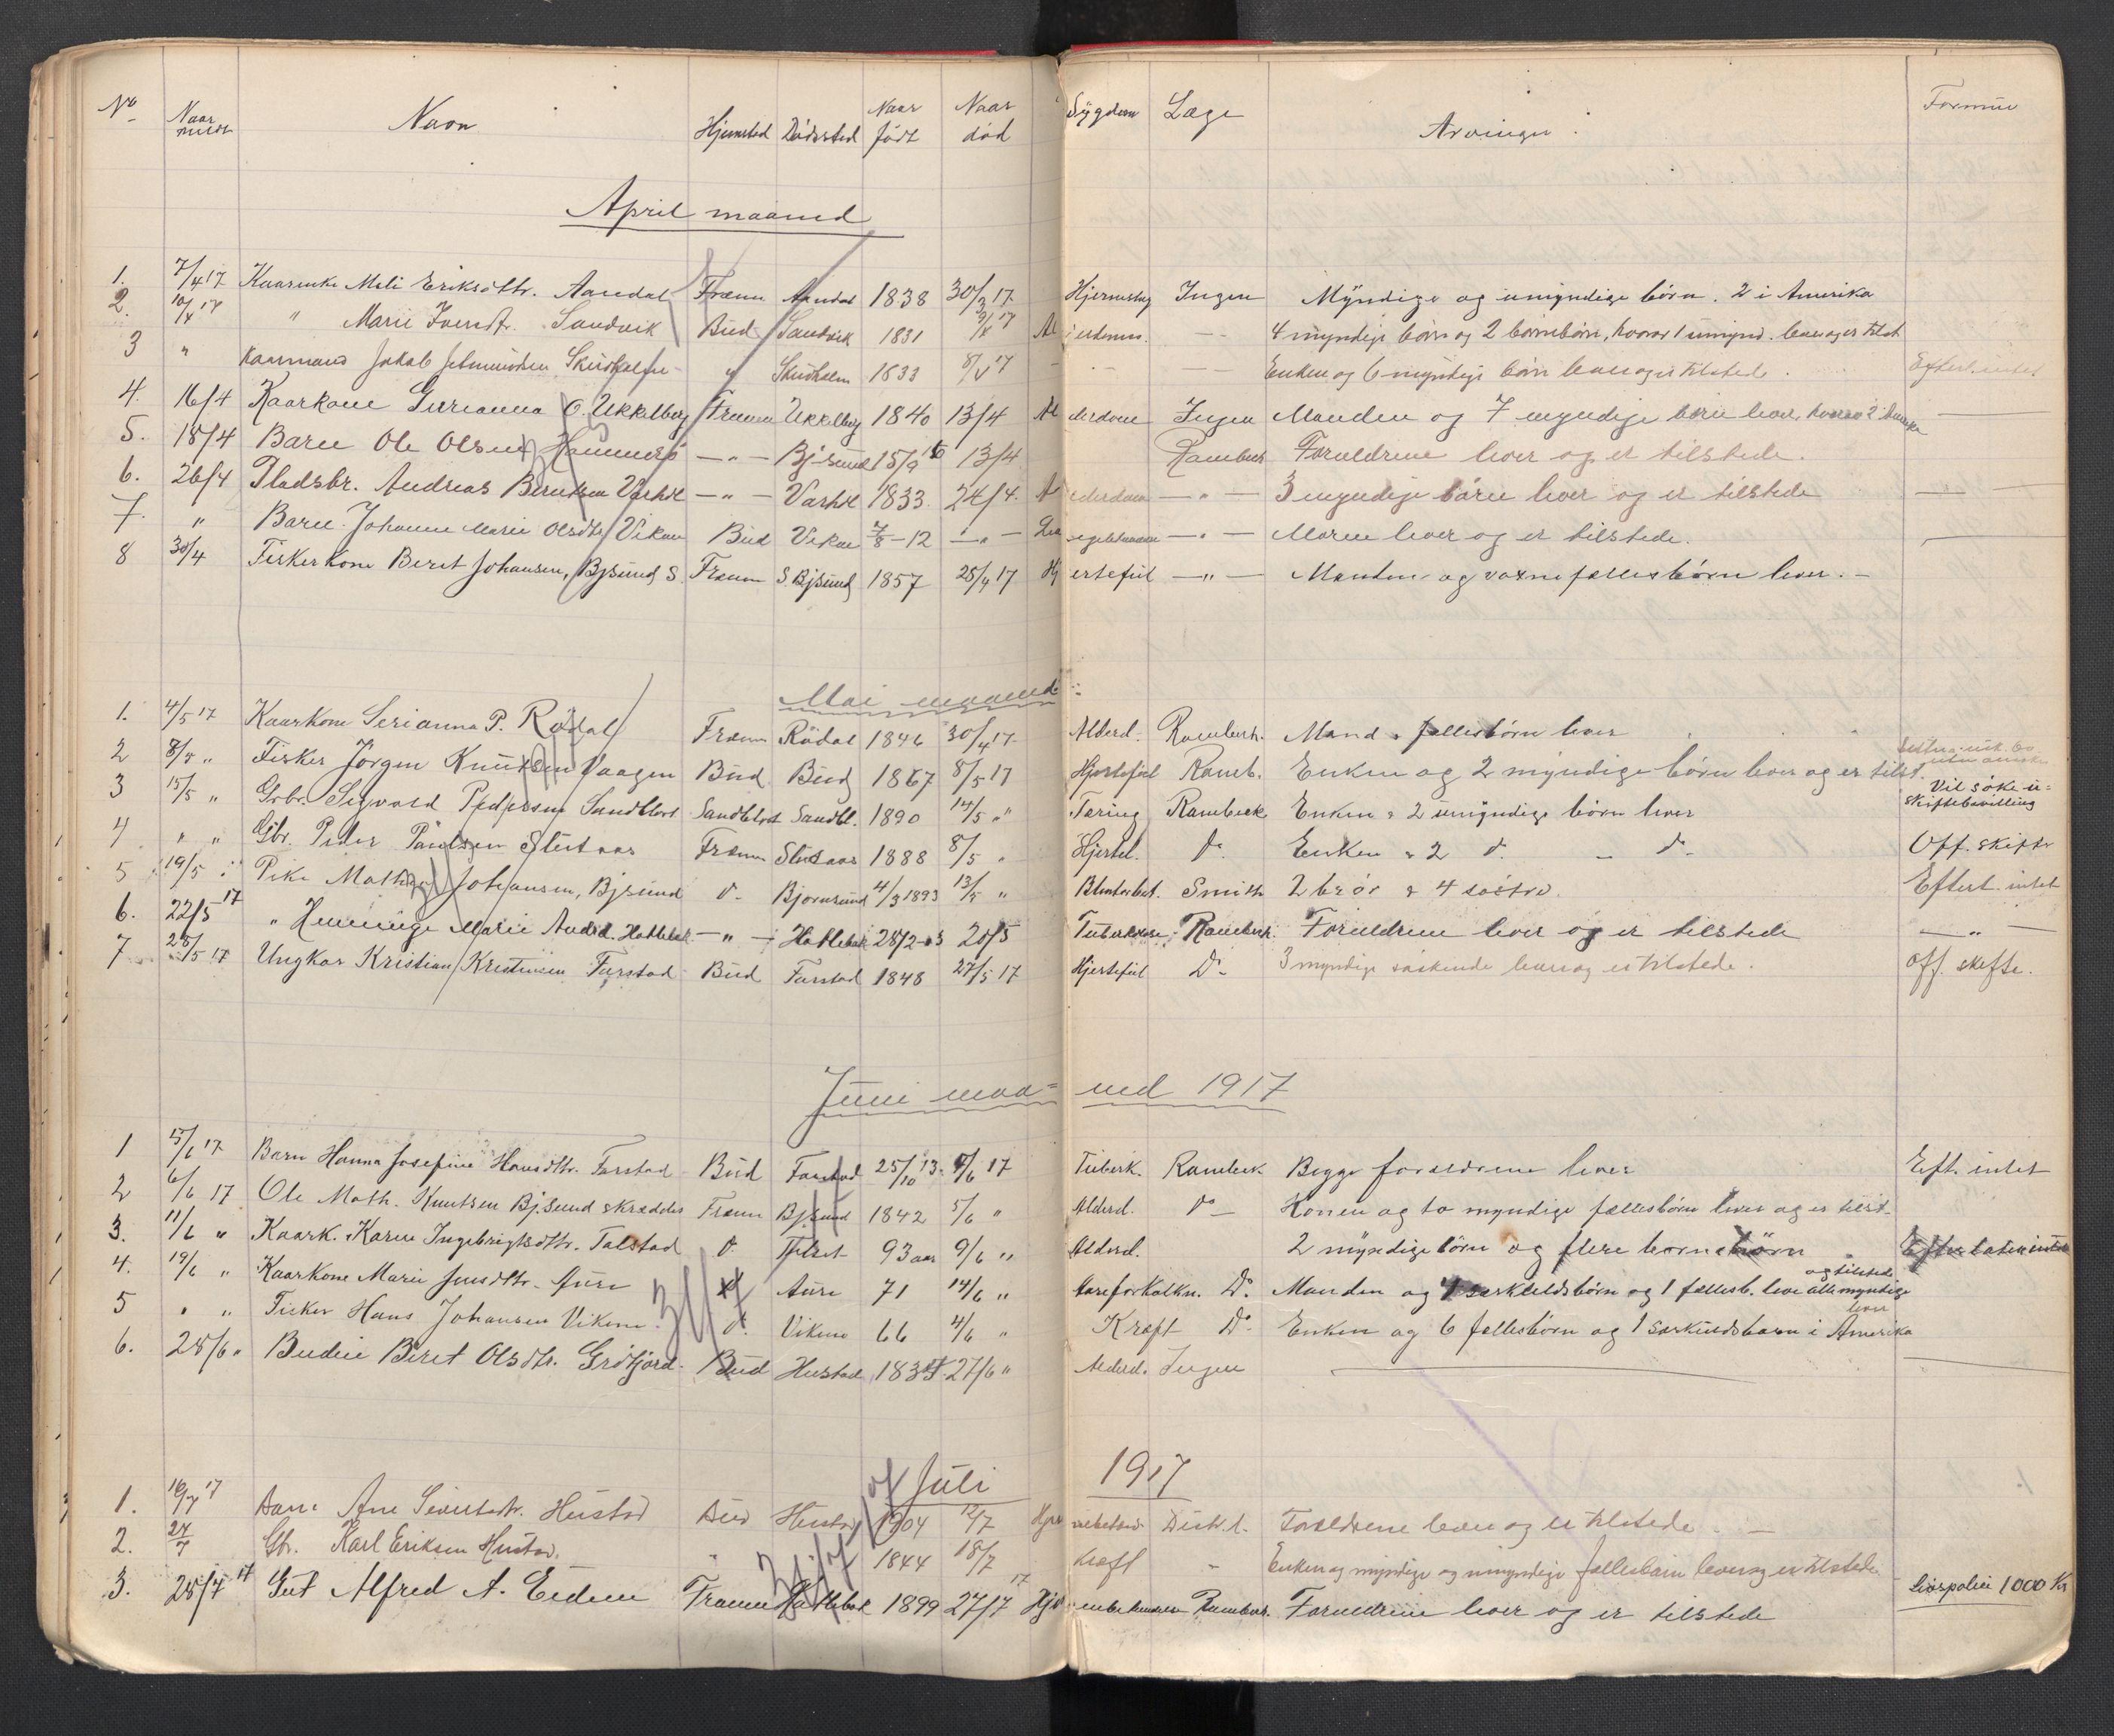 No Naar meldt Navn Hjemsted Dödssted Naar födt Naar död Sygdom Læge Arvinger Formue
April maaned
1. 7/4 17 Kaarenke Meli Eriksdttr. Aandal Fræna Aandal 1838 30/3 17 Hjerneslag Ingen Myndige og umyndige börn. 2 i Amerika
2. 10/4 17 " Marie Iversdtr. Sandvik Bud Sandvik 1831 9/4 17 Alderdoms. — 4 myndige börn og 2 barnebörn, hvorav 1 umynd. lever og er tilst
3 " Kaarmand Jakob Skudholm " Skudholm 1833 8/4 17 - - — Enken og 6 myndige börn lever og er tilstede. Efterl. intet
4. 16/4 Kaarkone Gurianna O. Ukkelberg Frænen Ukkelberg 1840 13/4 Alderdom Ingen Manden og 7 myndige börn lever, hvorav 2 i Amerika —
5. 18/4 Barn Ole Olsen Hammerö —"— Bjsund 15/9 16 13/4 Rambech Forældrene lever og er tilstede.
6. 26/4 Pladsbr. Andreas Berntsen Varhol —"— Varhol 1833. 24/4. Alderdom —"— 3 myndige börn lever og er tilstede —
7. " Barn Johanne Marie Olsdtr Vikan Bud Vikan 7/8-12 —"— —"— Moren lever og er tilstede. —
8 30/4 Fiskerkone Beret Johansen, Bjsund S. Fræna S. Bjsund 1857 28/4 17 Hjertefeil —"— Manden og voxne fællesbörn lever. —
Mai maaned
1. 4/5 17 Kaarkone Serianna P. Rödal Fræna Rödal 1846 30/4 17 Alderd. Rambech. Mand & fællesbörn lever
2 8/5 " Fisker Jörgen Knutsen Vaagen Bud. Bud 1867 8/5 17 Hjertefeil Ramb. Enken og 2 myndige börn lever og er tilst.
3 15/5 " Grbr. Sigvald Pedersen Sandblost Sandblost Sandbl. 1890 14/5 " Tæring Rambeck Enken & 2 umyndige börn lever Vil söke u=skiftebevilling
4 " " Gbr. Peder Paulsen Stutaas Fræna Stutaas 1888 8/5 " Hjertel. Do Enken & 2 do. — do- Off. skifte
5 19/5 : Pike Mathea Johansen, Bjsund do- Bjornsund 4/3 1893 13/5 " Smith 2 brör & 4 söstre. Efterl. intet
6. 22/5 17 " Henninge Marie Andrd. Hatlebak —"— Hatlebak 28/2-03 20/5 Tuberkulose Rambech. Foreldrene lever og er tilstede —"—
7 28/5 17 Ungkar Kristian Kristensen Farstad Bud Farstad 1848 27/5 17 Hjertefeil Do- 3 myndige söskende lever og er tilstede. Off. skifte.
Juni maa= ned 1917
1 5/6 17 Barn Hanna Josefine Hansdtr. Farstad Bud Farstad 25/10 13. 4/6 17 Tuberk. Rambeck Begge forældrene lever Eft. intet
2 6/6 17 Ole Math. Knutsen Bjsund skrædder Fræna Bjsund 1842 5/6 " Alderd. Do — Konen og to myndige fællesbörn lever og er tilst-
3. 11/6 " Kaark. Karen Ingebrigtsdtr. Talstad do. 93 aar 9/6 " Alderd. 2 myndige börn og flere barnebörn " Efterlater intet
4. 19/6 " Kaarkone Marie Jensdtr. Aure Aure 71 14/6 " Aareforkalkn. Do. Manden og 4 særkuldsbörn og 1 fællesb. leve og tilstede alle myndige
5 " " Fisker Hans Johansen Vikene do. Vikene 66 4/6 " Kræft Do- Enken og 6 fællesbörn og 1 særkuldsbarn i Amerika lever
6. 28/6 " Budeie Beret Olsdtr. Gröfjord Bud Hustad 1834 27/6 " Alderd. Ingen —
Juli 1917
1. 16/7 17 Barn Ane Sivertsdtr. Hustad Bud Hustad 1904 12/7 Distr.l. Forældrene lever og er tilstede. —
2. 24/7 Gbr. Karl Eriksen Hustad. " 1844 18/7 Kræft " Enken og myndige og umyndige fællesbörn lever og er tilstede
3. 28/7 17 Gut Alfred A. Eidem Frænen Hatlebak 1899 27/7 17 Rambech. Foreldrene lever og er tilstede Livspolice 1000 Kr
31/7 17